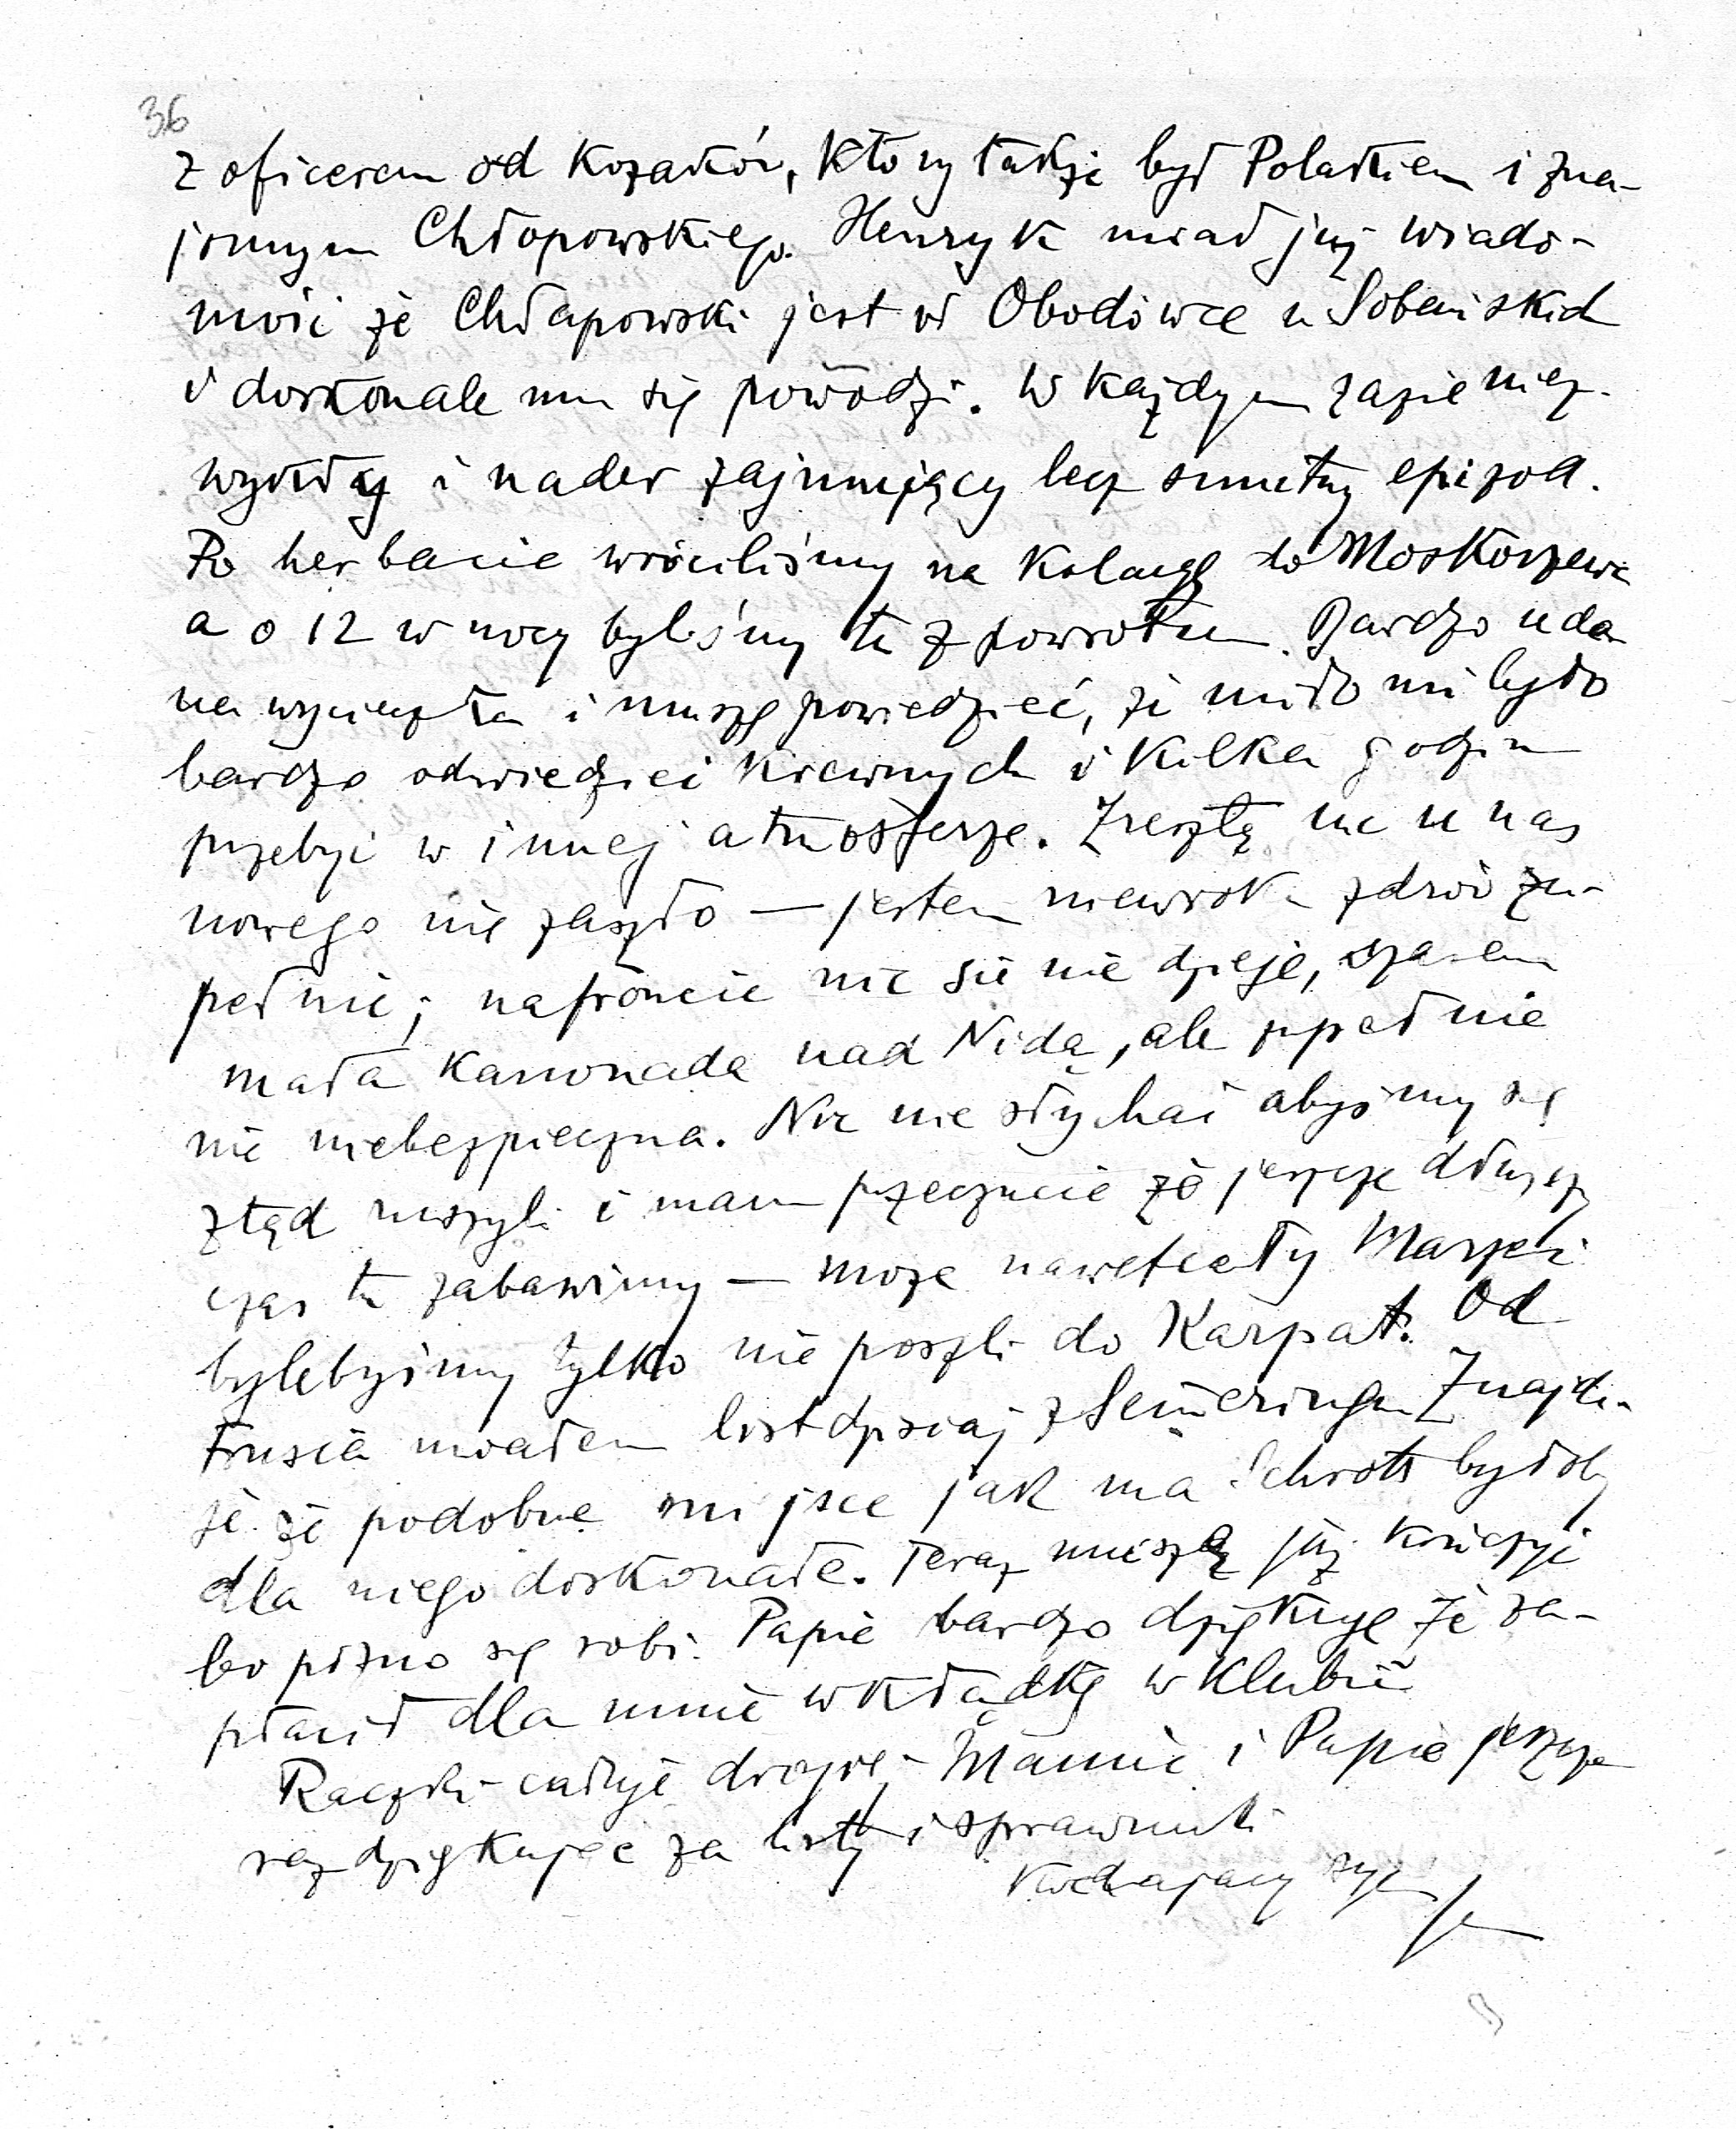 36
z oficerem od Kozaków, który także był Polakiem i zna-
jomym Chłapowskiego. Henryk miał już wiado-
mość że Chłapowski jest w Obodówce u Sobańskich
i doskonale mu się powodzi. W każdym razie niez-
wykły i nader zajmujący lecz smutny epizod.
Po herbacie wróciliśmy na kolację do Moskorzewa
a o 12 w nocy byliśmy tu z powrotem. Bardzo uda-
na wycieczka i muszę powiedzieć, że miło mi było
bardzo odwiedzić krewnych i kilka godzin
przebyć w innej atmosferze. Zresztą nic u nas
nowego nie zaszło — jestem zdrów zu-
pełnie; na froncie nic się nie dzieje, czasem
mała kanonada nad Nidą, ale zupełnie
nie niebezpieczna. Nic nie słychać abyśmy się
ztąd ruszyli i mam przeczucie że jeszcze dłuższy
czas tu zabawimy — może nawet cały Marzec
bylebyśmy tylko nie poszli do Karpat. Od
Trusia miałem list dzisiaj z Semeringu. Znajdu-
je że podobne miejsce jak ma Schrott byłoby
dla niego doskonałe. Teraz muszę już kończyć
bo późno się robi. Papie bardzo dziękuję że za-
płacił dla mnie wkładkę w Klubie
Rączki całuję drogiej Mamie i Papie jeszcze
raz dziękując za listy i sprawunki
Kochający syn